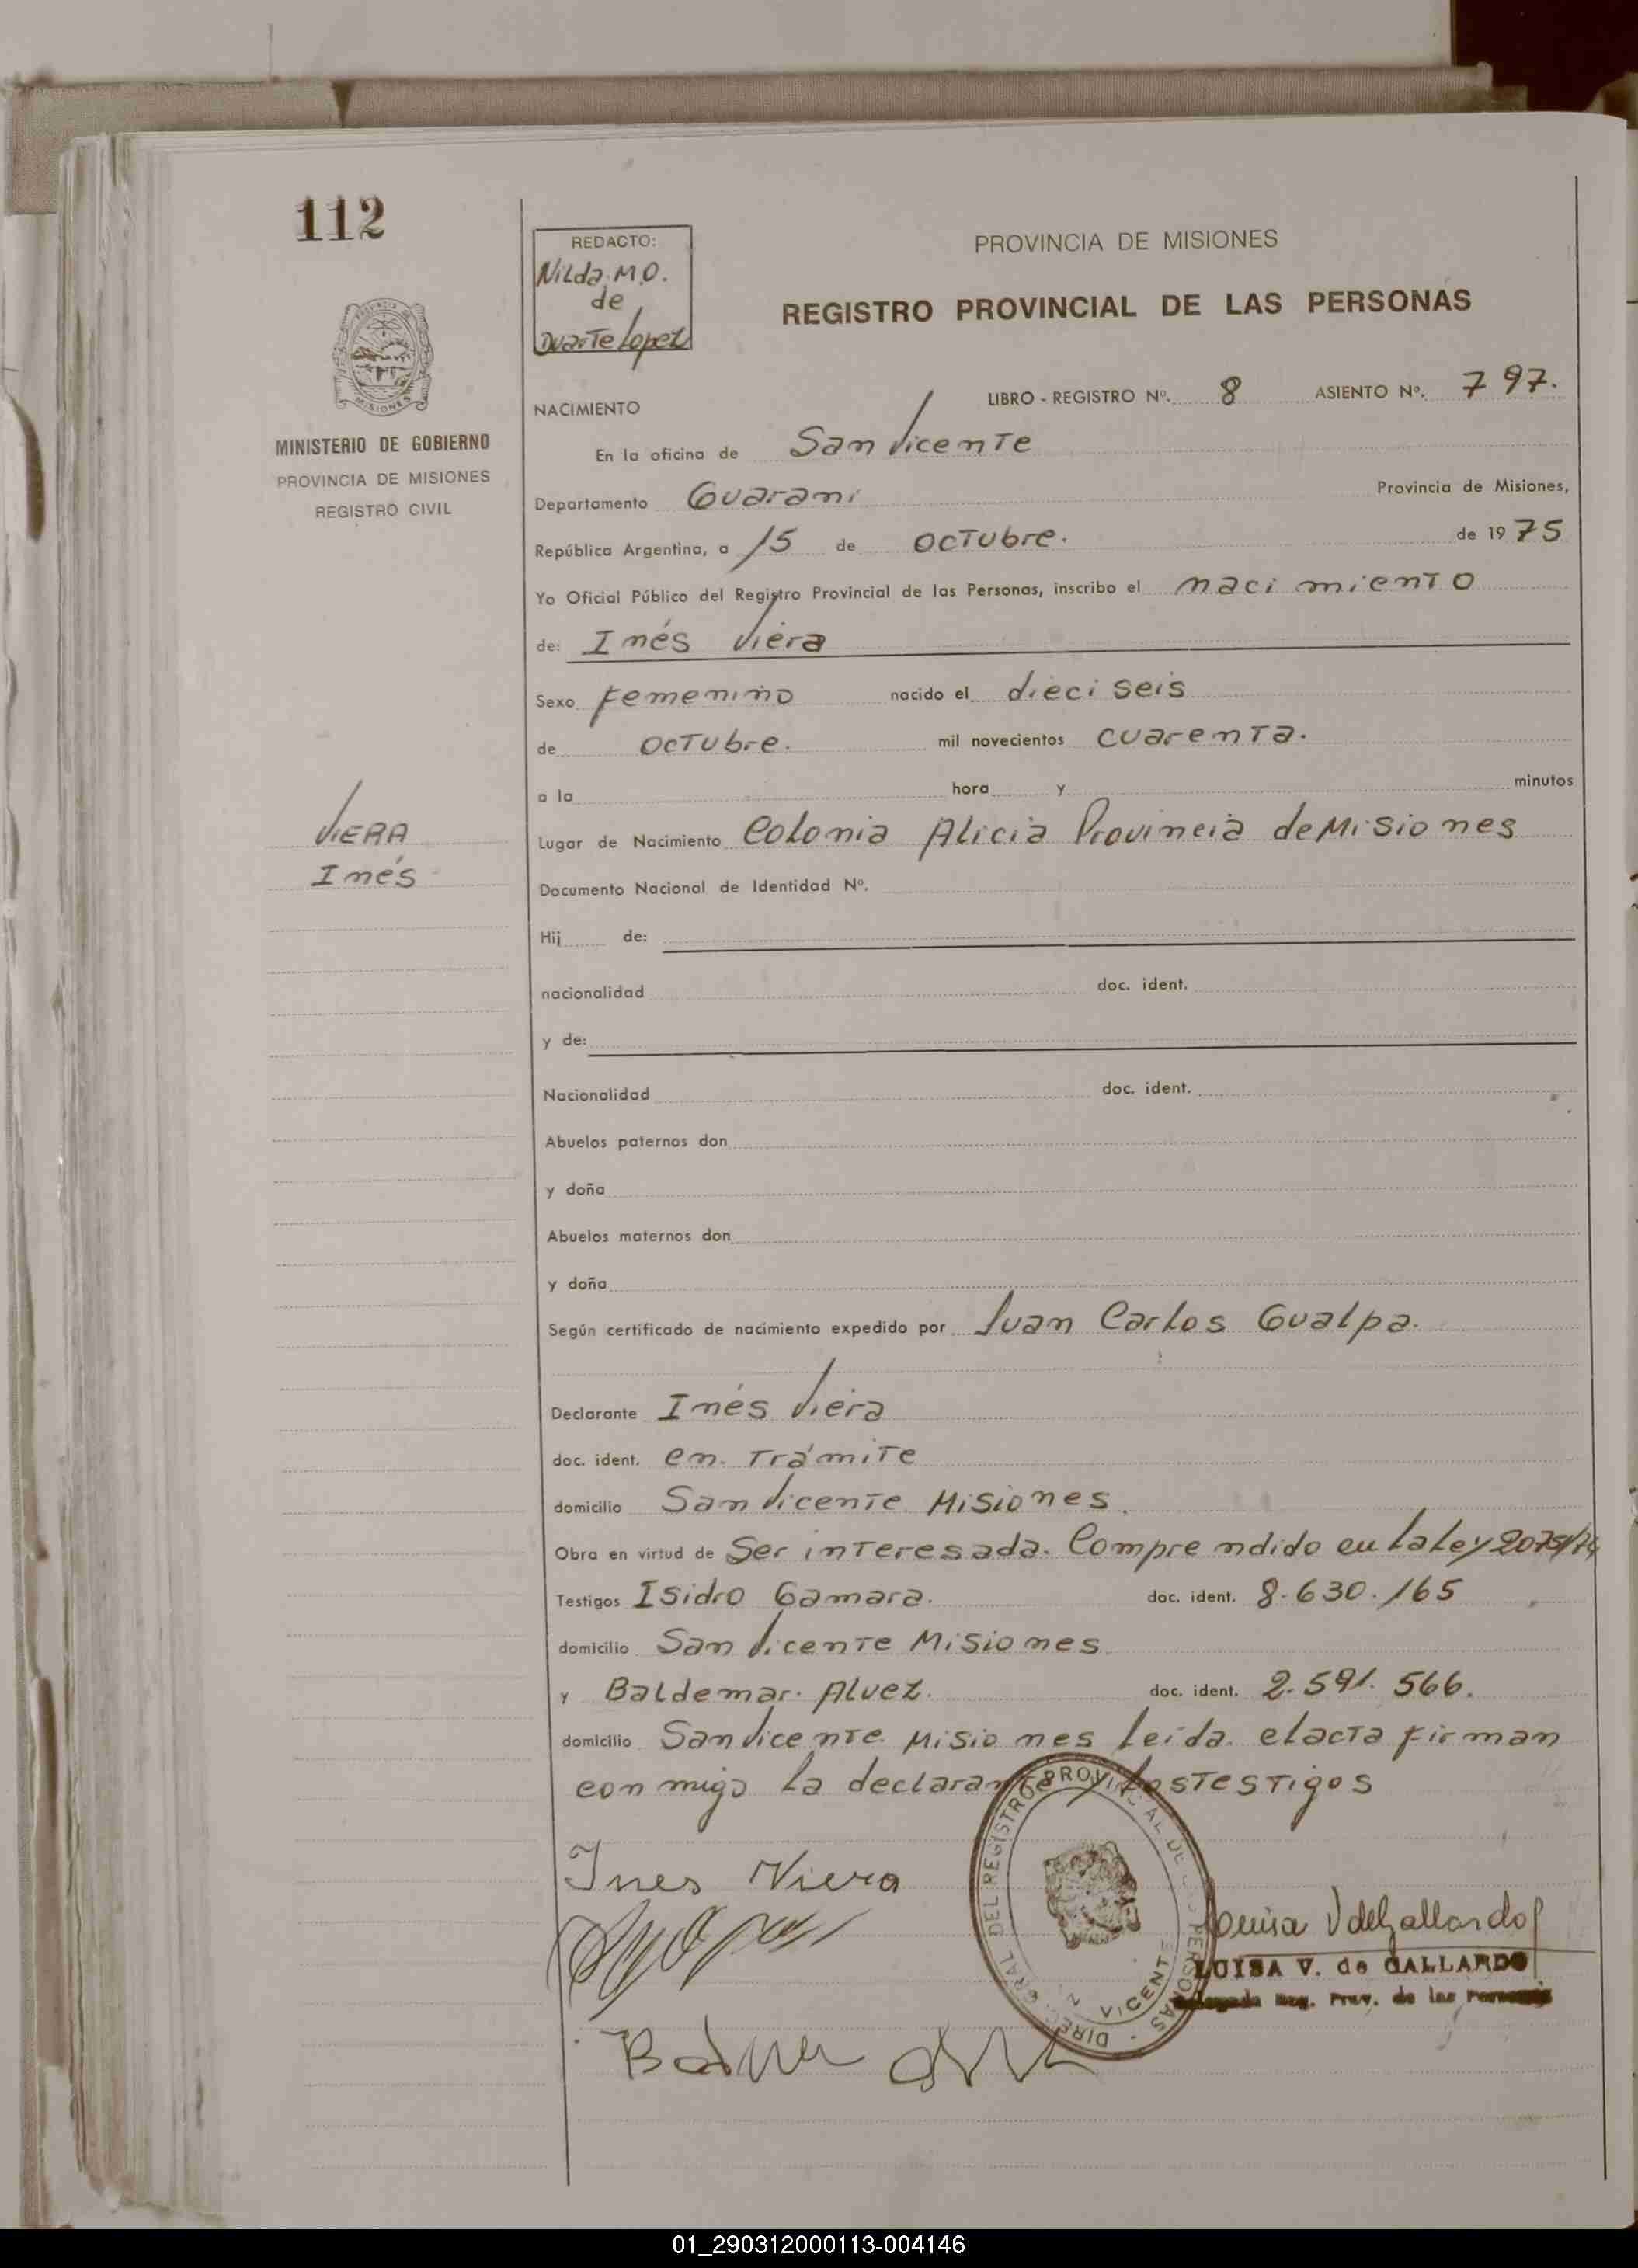 112
REDACTO:
Nilda M.O.
de
Duarte Lopez
PROVINCIA DE MISIONES
REGISTRO PROVINCIAL DE LAS PERSONAS
MISIONES
MINISTERIO DE GOBIERNO
PROVINCIA DE MISIONES
REGISTRO CIVIL
NACIMIENTO
LIBRO - REGISTRO Nº. 8 ASIENTO Nº. 797.
En la oficina de San Vicente
Departamento Guarani Provincia de Misiones,
República Argentina, a 15 de octubre. de 1975
Yo Oficial Público del Registro Provincial de las Personas, inscribo el nacimiento
de: Inés Viera
Sexo femenino nacido el dieciseis
de octubre. mil novecientos cuarenta.
a la hora y minutos
VIERA
Inés
Lugar de Nacimiento Colonia Alicia Provincia de Misiones
Documento Nacional de Identidad Nº.
Hij de:
nacionalidad doc. ident.
y de:
Nacionalidad doc. ident.
Abuelos paternos don
y doña
Abuelos maternos don
y doña
Según certificado de nacimiento expedido por Juan Carlos Gualpa.
Declarante Inés Viera
doc. ident. en trámite
domicilio San Vicente Misiones.
Obra en virtud de Ser interesada. Comprendido en la Ley 20751/74
Testigos Isidro Gamara. doc. ident. 8.630.165
domicilio San Vicente Misiones
y Baldemar Alvez. doc. ident. 2.591.566.
domicilio San Vicente Misiones leída el acta firman
conmigo la declarante y los testigos
Ines Viera
DIREC. GRAL DEL REGISTRO PROVINCIAL DE PERSONAS
VICENTE
Luisa V de Gallardo
LUISA V. de GALLARDO
Delegada Reg. Prov. de las Personas
01_290312000113-004146